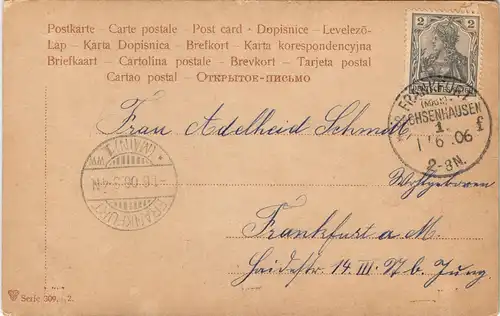 Postkarte - Carte postale - Post card - Dopisnice - Levelező-
Lap - Karta Dopisnica - Brefkort - Karta korespondencyjna
Briefkaart - Cartolina postale - Brevkort - Tarjeta postal
Cartao postal - Открытое-письмо
2
FRANKFURT
(MAIN)
SACHSENHAUSEN
1. f
1/6.06
2-3N.
Frau Adelheid Schmidt
Wohlgeboren
FRANKFURT (MAIN) 1
Frankfurt a. M.
Haidestr. 14 III St b. Jung
Serie 309. 2.